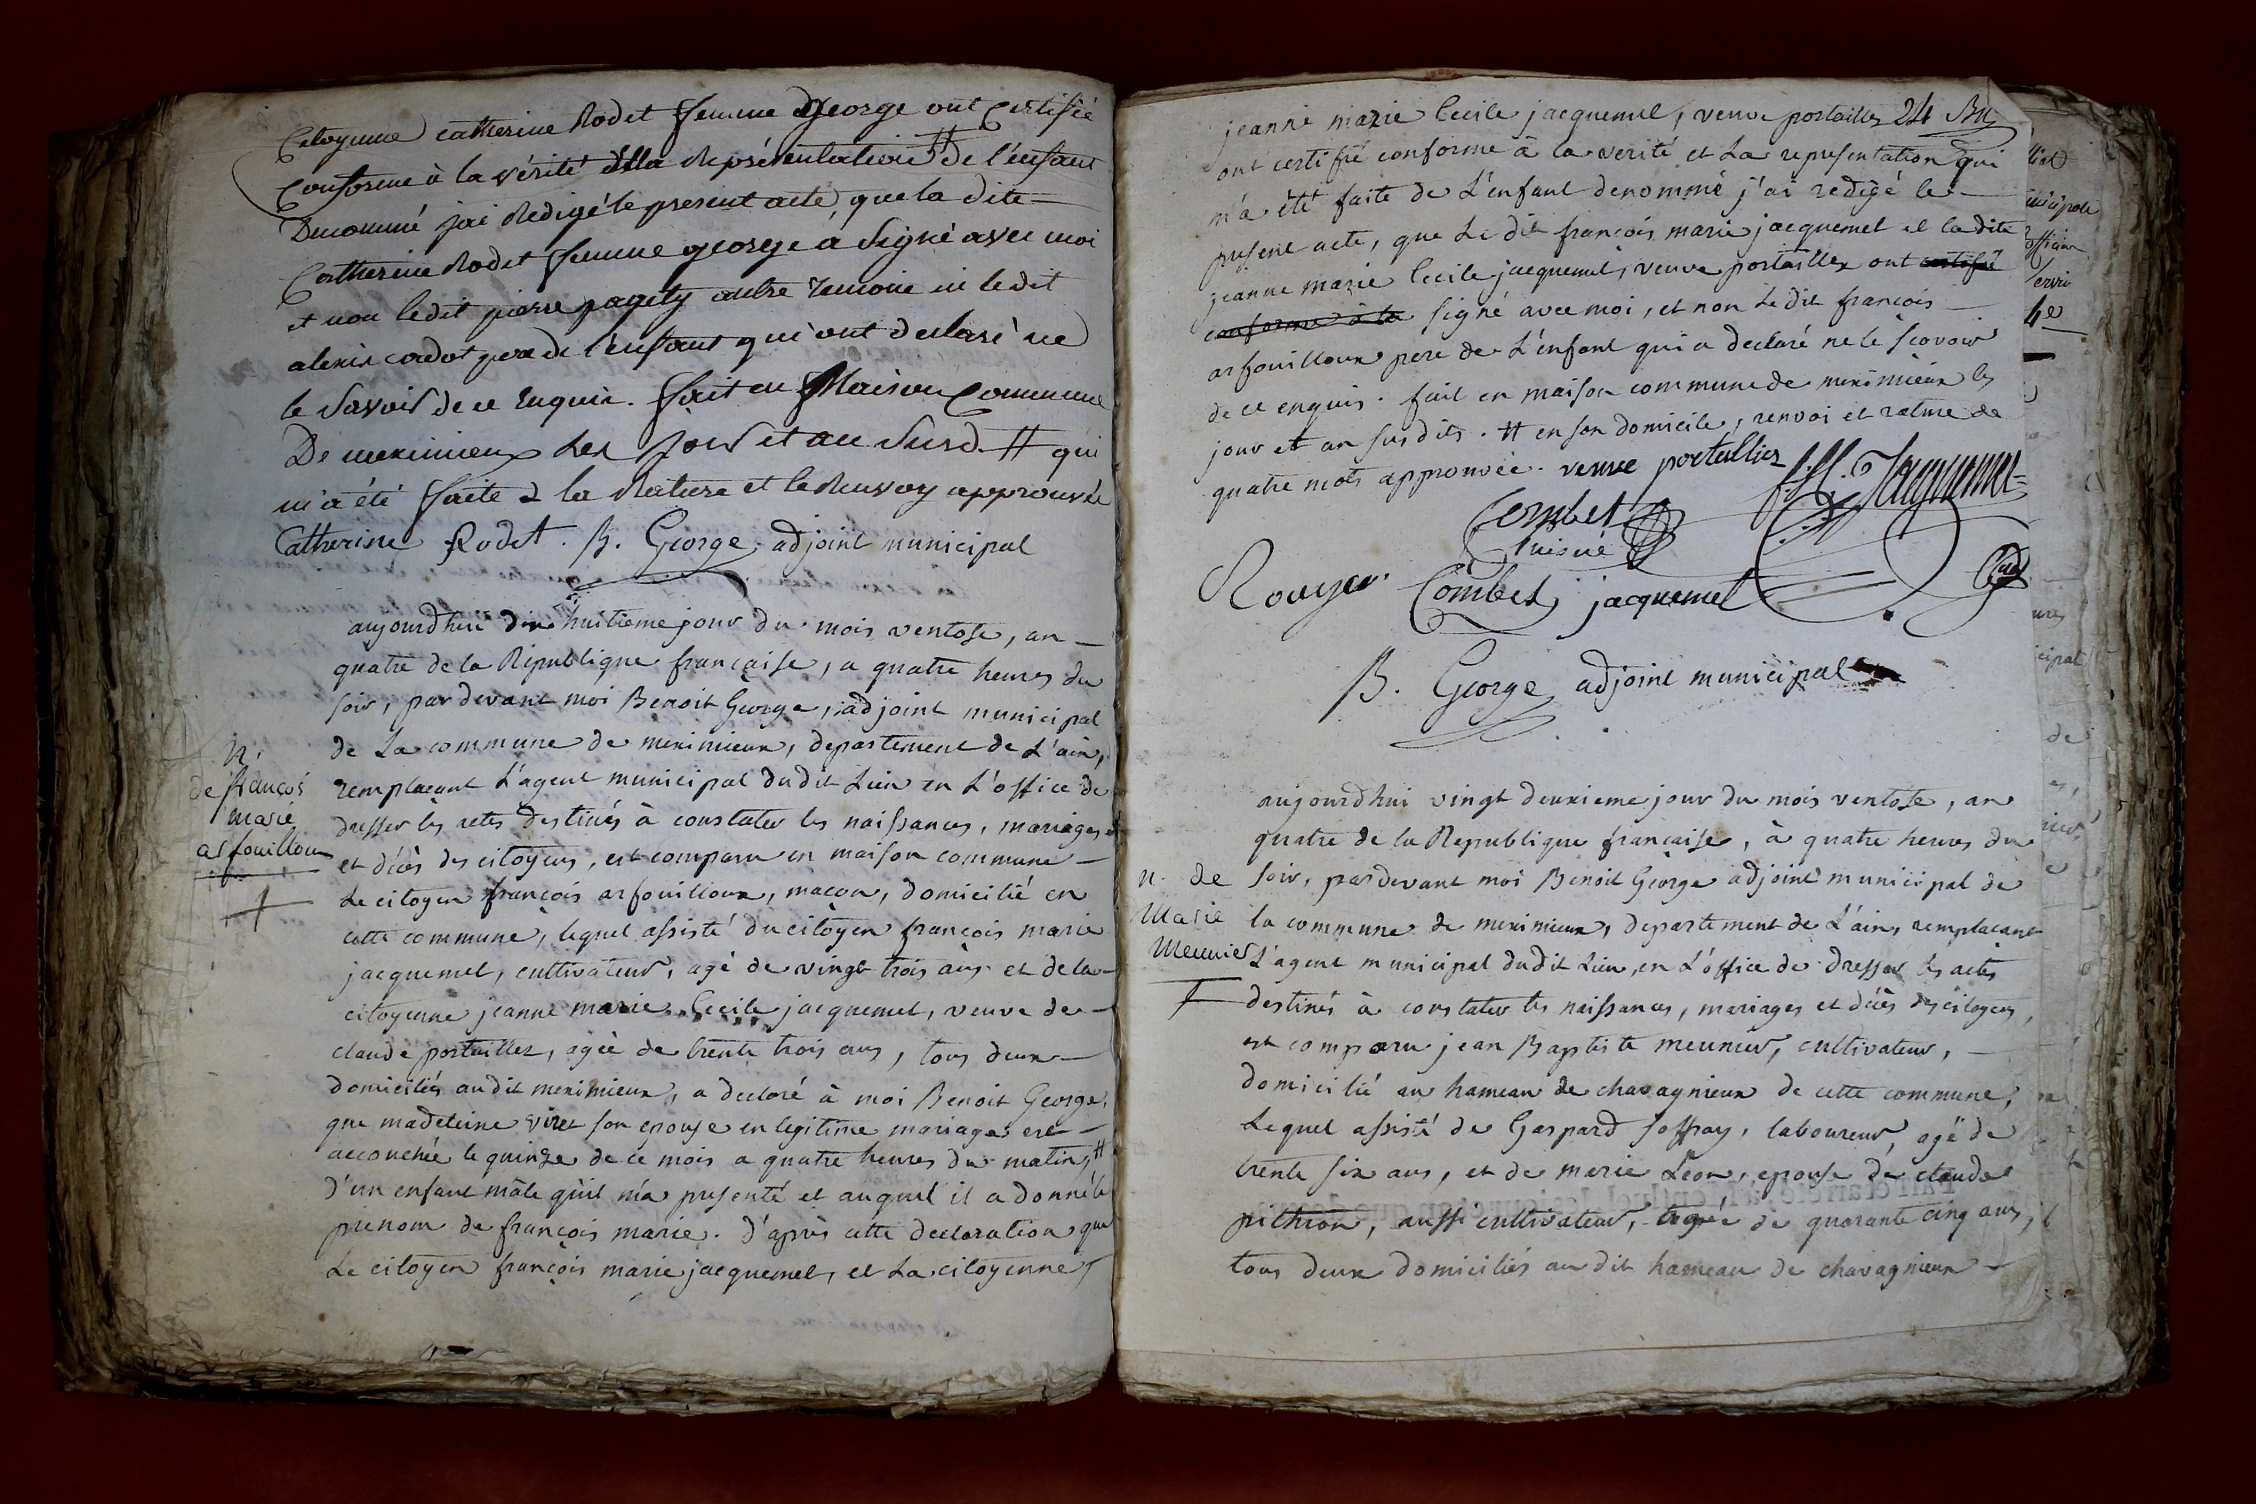 Citoyenne catherine Rodet femme George ont Certifié
conforme à la vérité & la Représentation # de l'enfant
Denommé jai Redigé le present acte, que la dite
Catherine Rodet femme george a Signé avec moi
et non ledit pierre pagety autre temoin ni ledit
alexis cordot pere de l'enfant qui ont declaré ne
le Savoir de ce Enquir. fait en Maison Commune
De meximieux les Jour et an Susd. # qui
m'a été faite & la Rature et le Renvoy approuvée
Catherine Rodet. B. George adjoint municipal
aujourdhui dix huitieme jour du mois ventose, an
quatre de la République française, a quatre heures du
soir, pardevant moi Benoit George, adjoint municipal
de La commune de meximieux, departement de L'ain,
remplacant L'agent municipal dudit Lieu en L'office de
dresser les actes destinés à constater les naissances, mariages
et décès des citoyens, est comparu en maison commune
Le citoyen françois arfouilloux, macon, domicilié en
cette commune, lequel assisté du citoyen françois marie
jacquemet, cultivateur, agé de vingt trois ans et de la
citoyenne jeanne marie Cecile jacquemet, veuve de
claude portallier, agée de trente trois ans, tous deux
domiciliés audit meximieux, a declaré à moi Benoit George,
que madeleine viret son epouse en legitime mariage est
accouchée le quinze de ce mois a quatre heures du matin, #
d'un enfant mâle qu'il m'a presenté et auquel il a donné le
prenom de françois marie. D'après cette declaration que
Le citoyen françois marie jacquemet, et La citoyenne
n.
de françois
marie
arfouilloux
jeanne marie Cecile jacquemet, veuve portallier 24
ont certifié conforme à la verité et La representation qui
m'a été faite de L'enfant denommé j'ai redigé le
present acte, que Le dit françois marie jacquemet et la dite
jeanne marie Cecile jacquemet, veuve portallier ont certifié
conforme à la signé avec moi, et non Le dit françois
arfouilloux pere de L'enfant qui a declaré ne le scavoir
de ce enquis. fait en maison commune de meximieux les
jour et an susdits. # en son domicile, renvoi et rature de
quatre mots approuvée. veuve portallier f. M. Jacquemet
Combet
Rouyer. Combet jacquemet
B. George adjoint municipal
aujourdhui vingt deuxieme jour du mois ventose, an
quatre de la Republique française, à quatre heures du
soir, pardevant moi Benoit George adjoint municipal de
la commune de meximieux, departement de L'ain, remplacant
L'agent municipal dudit Lieu, en L'office de dresser les actes
destinés à constater les naissances, mariages et décès des citoyens,
est comparu jean Baptiste meunier, cultivateur,
domicilié au hameau de chavagnieux de cette commune,
Lequel assisté de Gaspard soffray, laboureur, agé de
trente six ans, et de marie Leon, epouse de claude
pithion, aussi cultivateur, agée de quarante cinq ans,
tous deux domiciliés au dit hameau de chavagnieux
n. de
Marie
Meunier